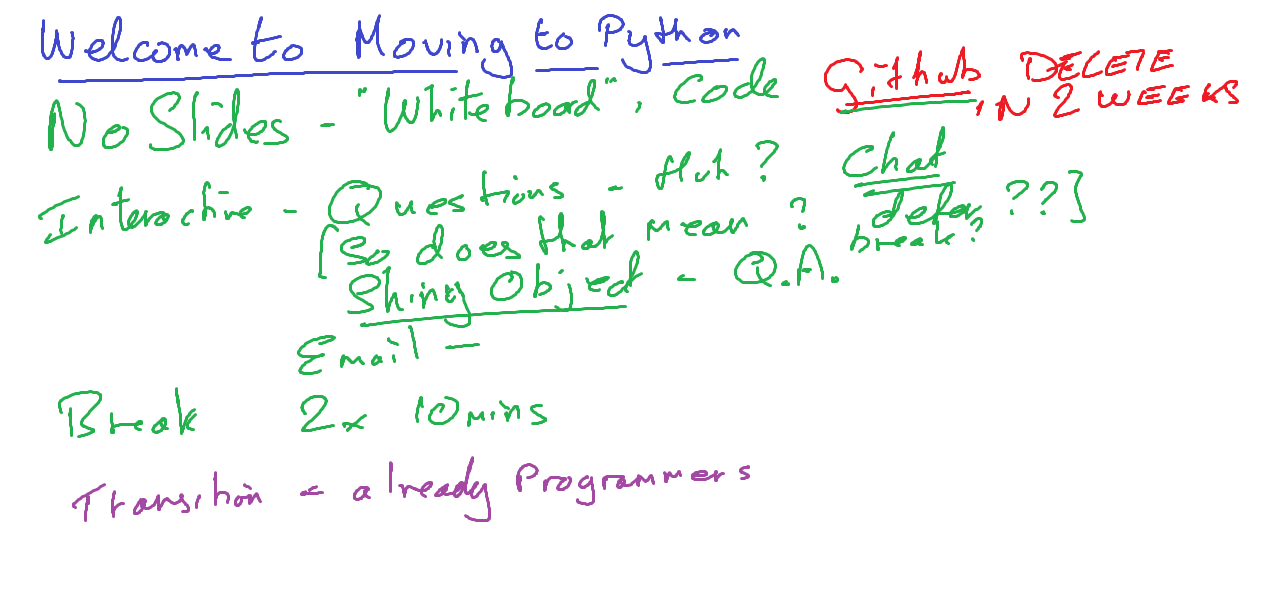 Welcome to Moving to Python
No Slides - "Whiteboad", Code Github DELETE
IN 2 WEEKS
Interactive - Questions - Huh? Chat
[So does that mean? defer ??]
break?
Shiny Object - Q.A.
Email -
Break 2x 10mins
Transition - already Programmers